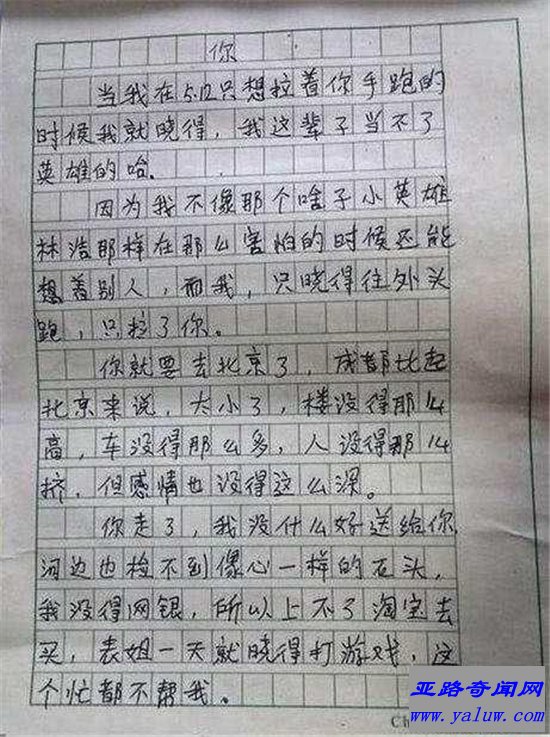 你
当我在5.12只想拉着你手跑的
时候我就晓得，我这辈子当不了
英雄的哈.
因为我不像那个啥子小英雄
林浩那样在那么害怕的时候还能
想着别人，而我，只晓得往外头
跑，只拉了你。
你就要去北京了，成都比起
北京来说，太小了，楼没得那么
高，车没得那么多，人没得那么
挤，但感情也没得这么深。
你走了，我没什么好送给你，
河边也捡不到像心一样的石头，
我没得网银，所以上不了淘宝去
买，表姐一天就晓得打游戏，这
个忙都不帮我。
亚路奇闻网
www.yaluw.com
Ch